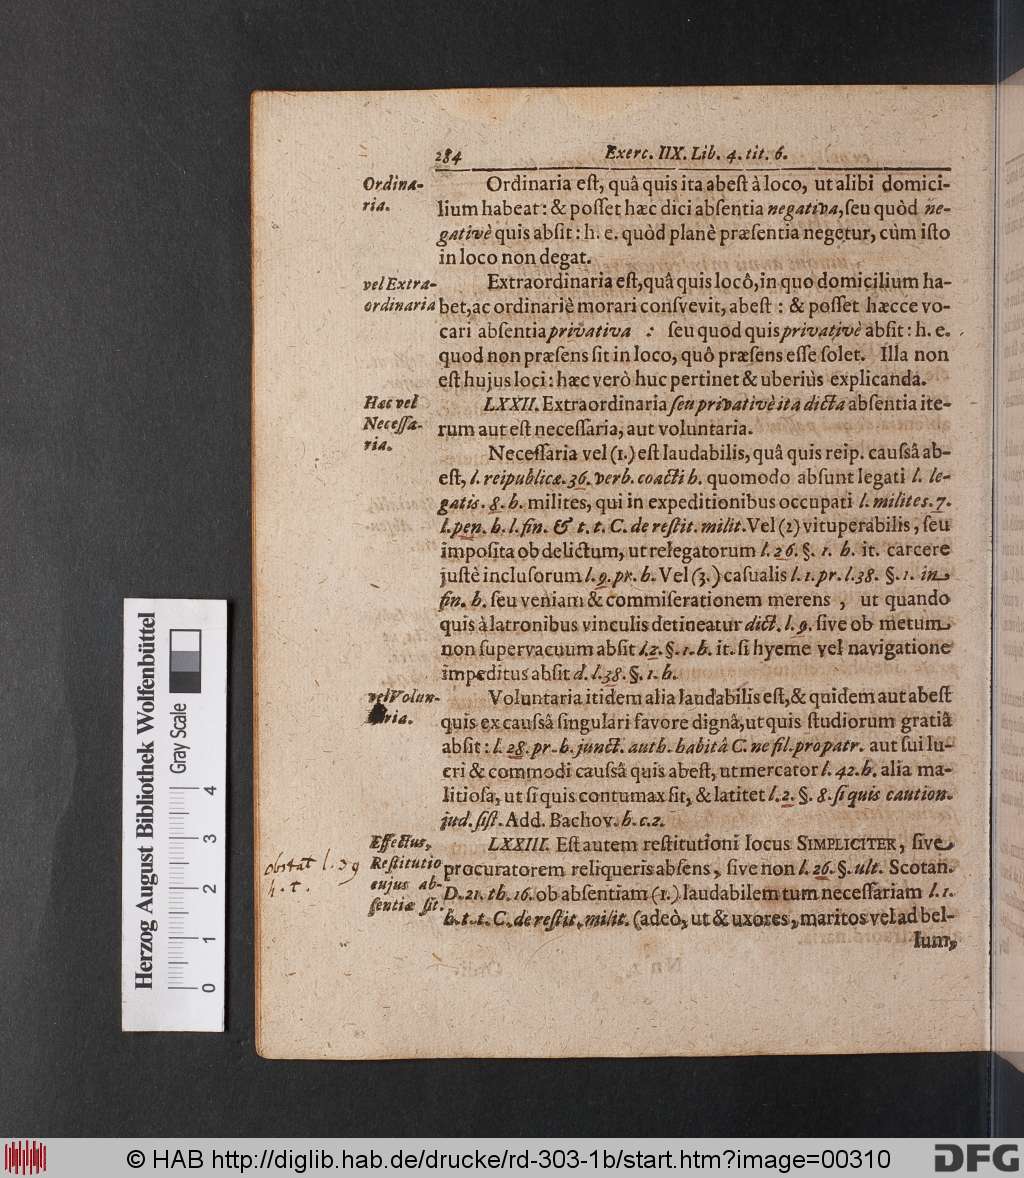 284 Exerc. IIX. Lib. 4. tit. 6.
Ordina-
ria.
Ordinaria eſt, quâ quis ita abeſt à loco, ut alibi domici-
lium habeat: & poſſet hæc dici abſentia negativa, ſeu quòd ne-
gativè quis abſit: h. e. quòd planè præſentia negetur, cùm iſto
in loco non degat.
vel Extra-
ordinaria
Extraordinaria eſt, quâ quis locô, in quo domicilium ha-
bet, ac ordinariè morari conſvevit, abeſt: & poſſet hæcce vo-
cari abſentia privativa : ſeu quod quis privativè abſit: h. e.
quod non præſens ſit in loco, quô præſens eſſe ſolet. Illa non
eſt hujus loci: hæc verò huc pertinet & uberiùs explicanda.
Hæc vel
Neceſſa-
ria.
LXXII. Extraordinaria ſeu privativè ita dicta abſentia ite-
rum aut eſt neceſſaria, aut voluntaria.
Neceſſaria vel (1.) eſt laudabilis, quâ quis reip. cauſsâ ab-
eſt, l. reipublicæ. 36. verb. coacti h. quomodo abſunt legati l. le-
gatis. 8. h. milites, qui in expeditionibus occupati l. milites. 7.
l. pen. h. l. fin. & t. t. C. de reſtit. milit. Vel (2) vituperabilis, ſeu
impoſita ob delictum, ut relegatorum l. 26. §. 1. h. it. carcere
juſtè incluſorum l. 9. pr. h. Vel (3.) caſualis l. 1. pr. l. 38. §. 1. in
fin. h. ſeu veniam & commiſerationem merens, ut quando
quis à latronibus vinculis detineatur dict. l. 9. ſive ob metum
non ſupervacuum abſit l. 2. §. 1. h. it. ſi hyeme vel navigatione
impeditus abſit d. l. 38. §. 1. h.
vel Volun-
taria.
Voluntaria itidem alia laudabilis eſt, & quidem aut abeſt
quis ex cauſsâ ſingulari favore dignâ, ut quis ſtudiorum gratiâ
abſit: l. 28. pr. h. junct. auth. habitâ C. ne fil. pro patr. aut ſui lu-
cri & commodi cauſsâ quis abeſt, ut mercator l. 42. h. alia ma-
litioſa, ut ſi quis contumax ſit, & latitet l. 2. §. 8. ſi quis caution.
jud. ſiſt. Add. Bachov. h. c. 2.
Effectus,
Reſtitutio
cujus ab-
ſentiæ ſit.
obstat l. 39
h. t.
LXXIII. Eſt autem reſtitutioni locus SIMPLICITER, ſive
procuratorem reliqueris abſens, ſive non l. 26. §. ult. Scotan.
D. 21. th. 16. ob abſentiam (1.) laudabilem tum neceſſariam l. 1.
h. t. t. C. de reſtit. milit. (adeò, ut & uxores, maritos vel ad bel-
lum,
Herzog August Bibliothek Wolfenbüttel
Gray Scale
0 1 2 3 4
© HAB http://diglib.hab.de/drucke/rd-303-1b/start.htm?image=00310
DFG